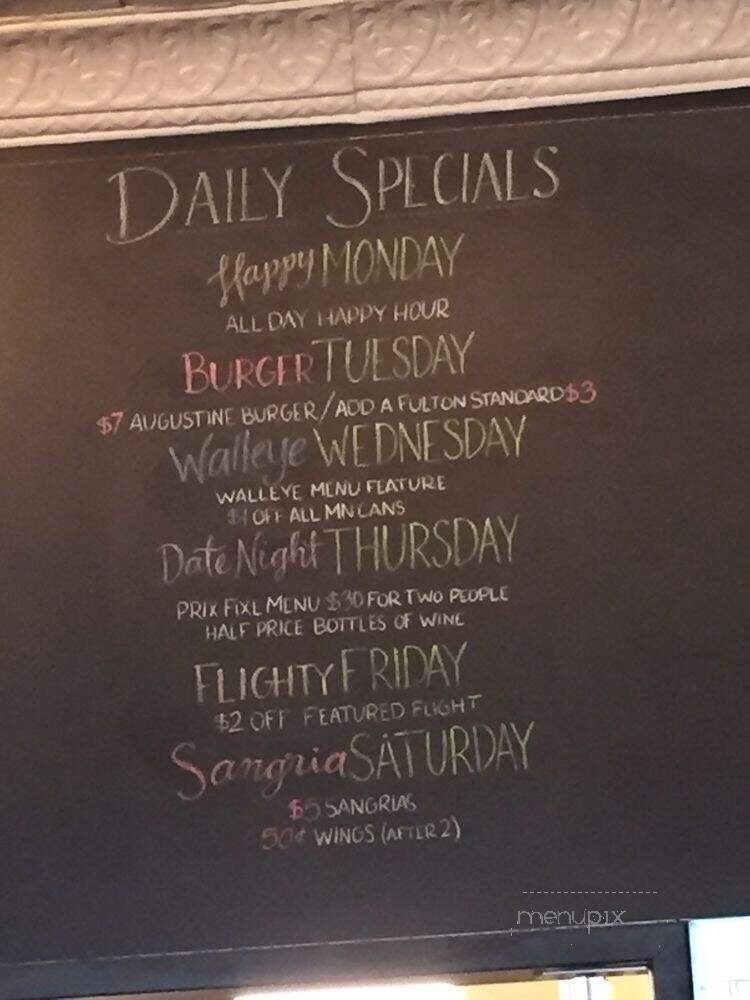 DAILY SPECIALS
Happy MONDAY
ALL DAY HAPPY HOUR
BURGER TUESDAY
$7 AUGUSTINE BURGER/ADD A FULTON STANDARD $3
Walleye WEDNESDAY
WALLEYE MENU FEATURE
$1 OFF ALL MN CANS
Date Night THURSDAY
PRIX FIXE MENU $30 FOR TWO PEOPLE
HALF PRICE BOTTLES OF WINE
FLIGHTY FRIDAY
$2 OFF FEATURED FLIGHT
Sangria SATURDAY
$5 SANGRIAS
50¢ WINGS (AFTER 2)
menupix